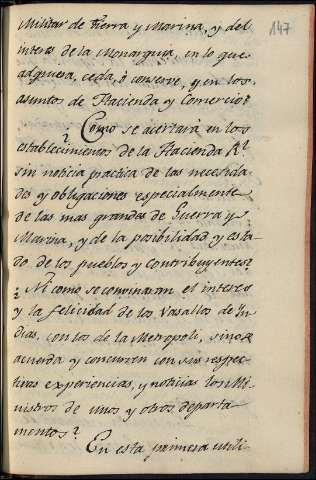 147
Militar de tierra y Marina, y del
interes de la Monarquia, en lo que
adquiera, ceda, ó conserve, y en los
asuntos de Hacienda y Comercio?
¿Como se acertará en los
establecimientos de la Hacienda Rl.
sin noticia practica de las necesida-
des y obligaciones especialmente
de las mas grandes de Guerra y
Marina, y de la posibilidad y esta-
do de los pueblos y contribuyentes?
¿Ni como se convinaran el interes
y la felicidad de los Vasallos de In-
dias, con los de la Metropoli, sino se
acuerda y concurren con sus respec-
tivas experiencias, y noticias los Mi-
nistros de unos y otros departa-
mentos?
En esta primera utili-